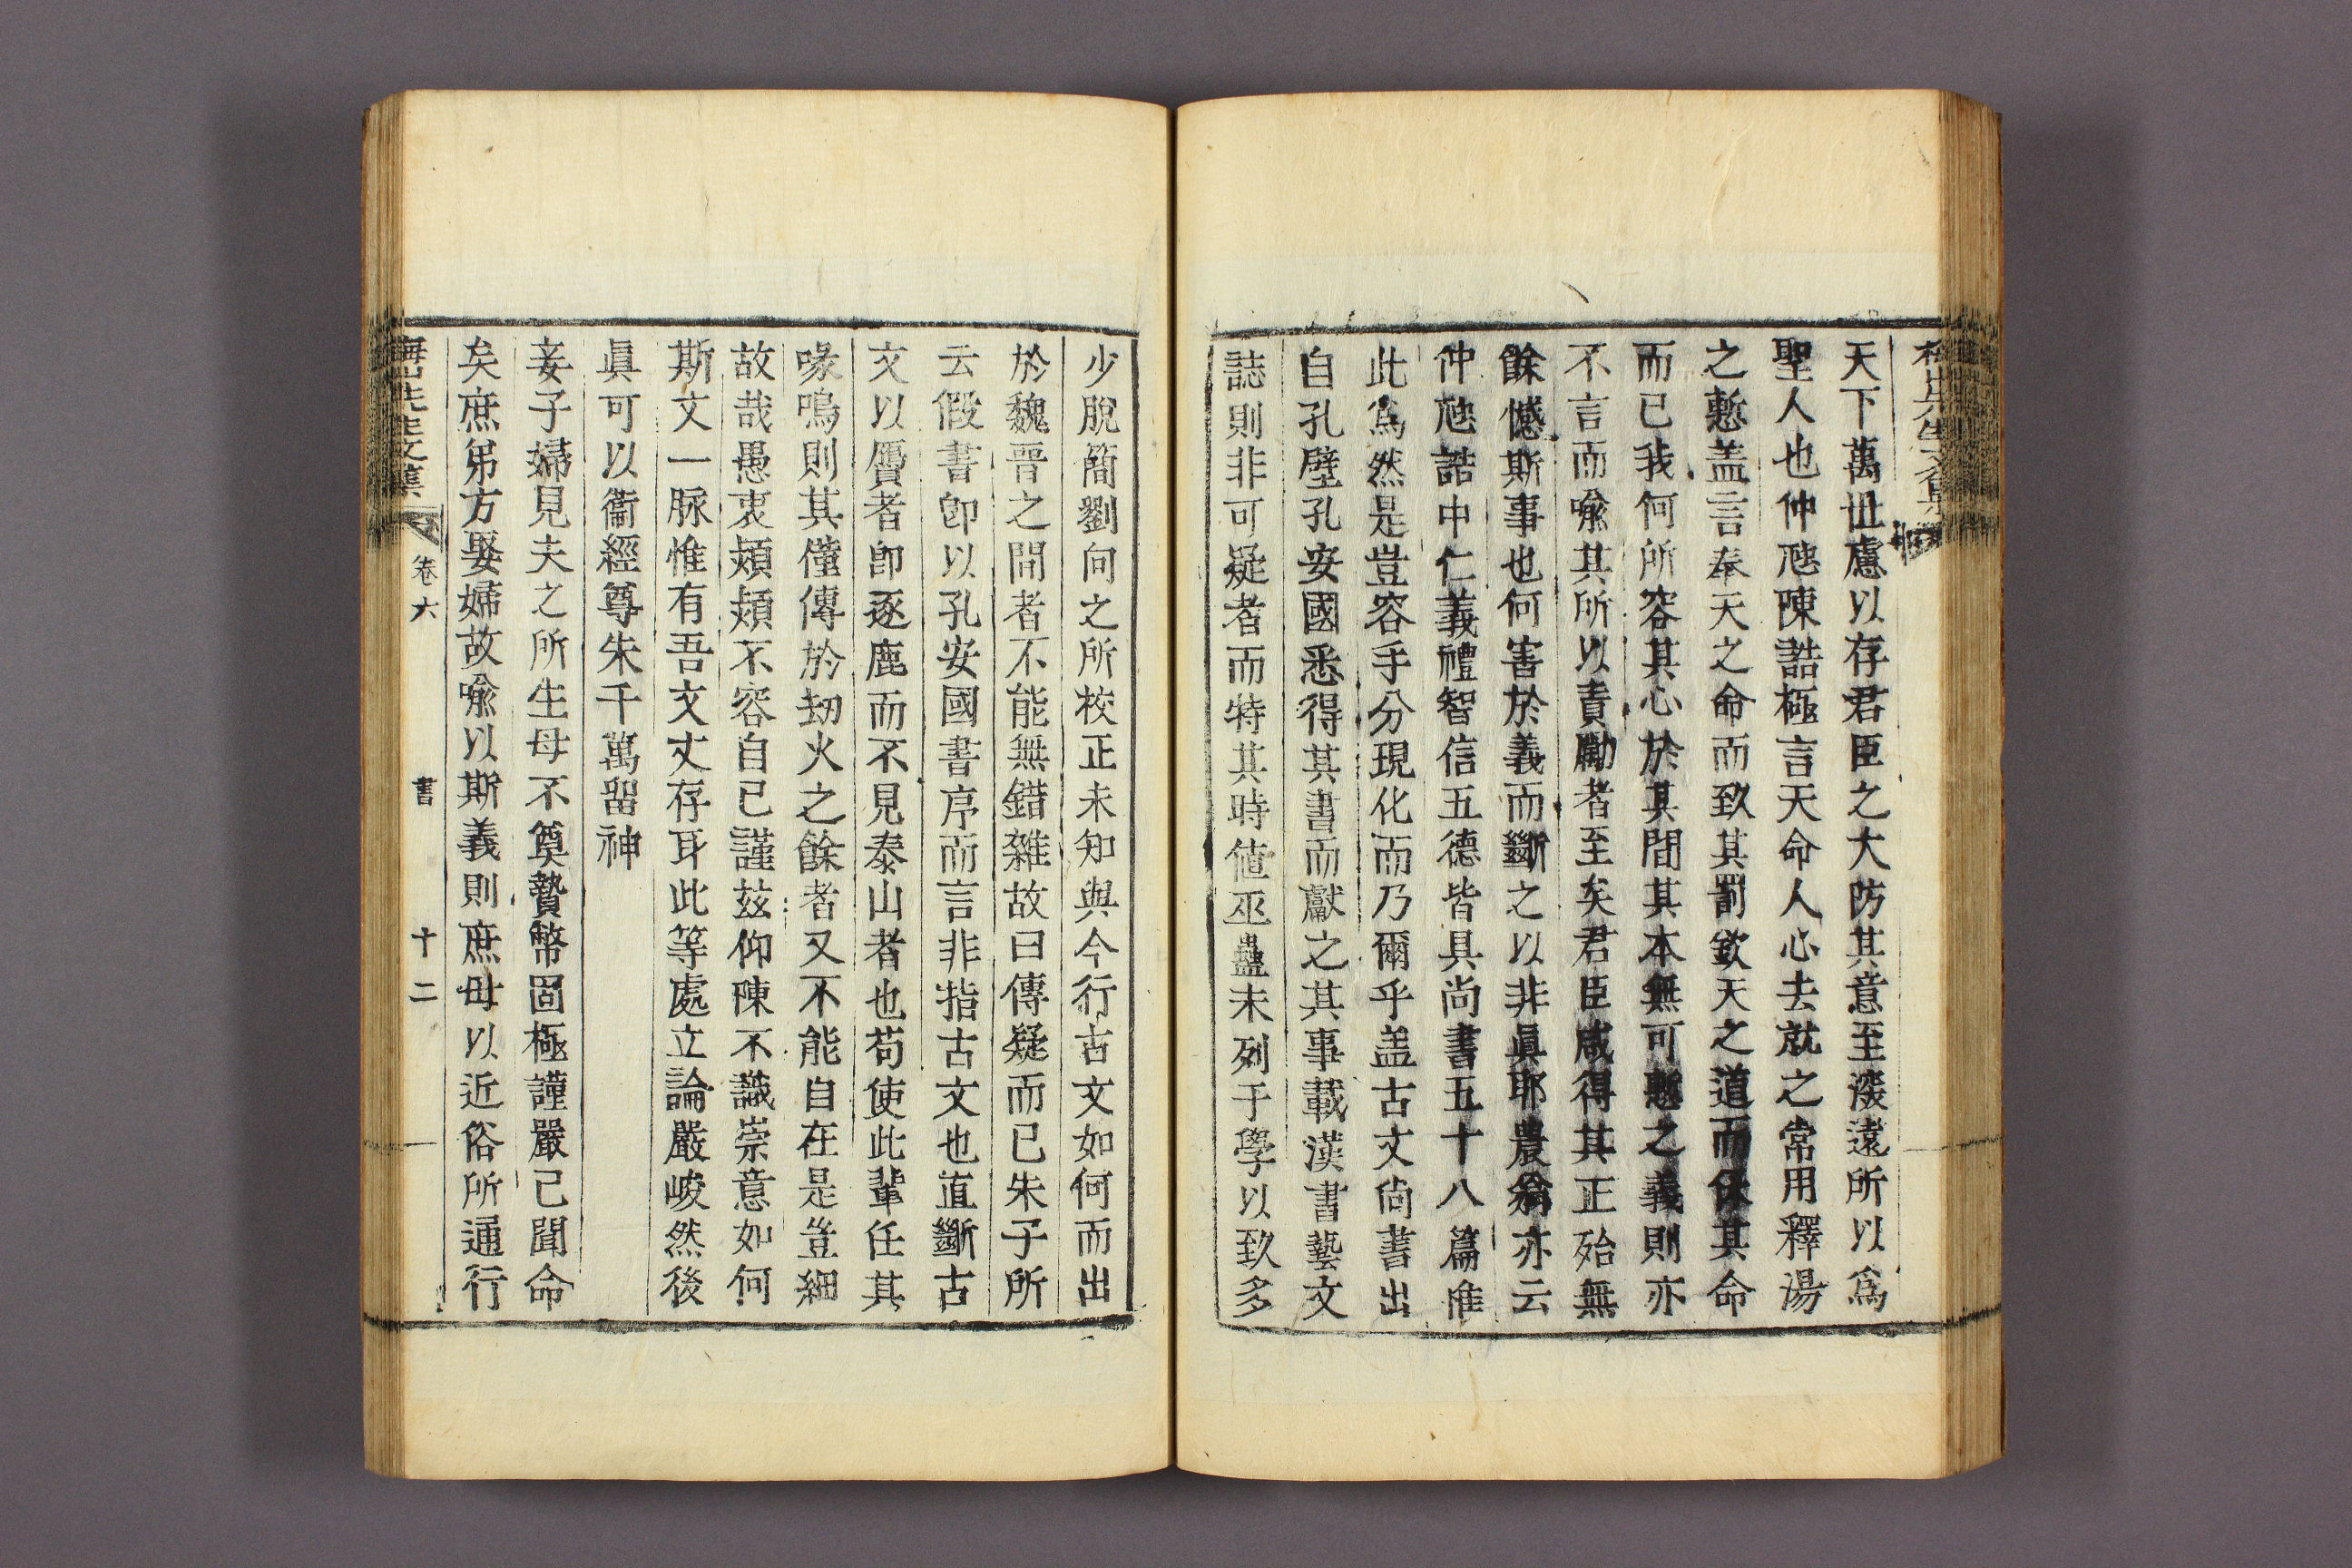 天下萬世慮以存君臣之大防其意至深遠所以爲
聖人也仲虺陳誥極言天命人心去就之常用釋湯
之慙盖言奉天之命而致其罰欽天之道而保其命
而已我何所容其心於其間其本無可慙之義則亦
不言而喩其所以責勵者至矣君臣咸得其正殆無
餘憾斯事也何害於義而斷之以非眞耶農翁亦云
仲虺誥中仁義禮智信五德皆具尙書五十八篇惟
此爲然是豈容手分現化而乃爾乎盖古文尙書出
自孔壁孔安國悉得其書而獻之其事載漢書藝文
誌則非可疑者而特其時値巫蠱未列于學以致多
少脫簡劉向之所校正未知與今行古文如何而出
於魏晋之間者不能無錯雜故曰傳疑而已朱子所
云假書卽以孔安國書序而言非指古文也直斷古
文以贗者卽逐鹿而不見泰山者也苟使此輩任其
喙鳴則其僅傳於劫火之餘者又不能自在是豈細
故哉愚衷頬頬不容自已謹玆仰陳不識崇意如何
斯文一脉惟有吾文丈存耳此等處立論嚴峻然後
眞可以衞經尊朱千萬留神
妾子婦見夫之所生母不奠贄幣固極謹嚴已聞命
矣庶弟方娶婦故喩以斯義則庶母以近俗所通行
先生文集 卷六 書 十二